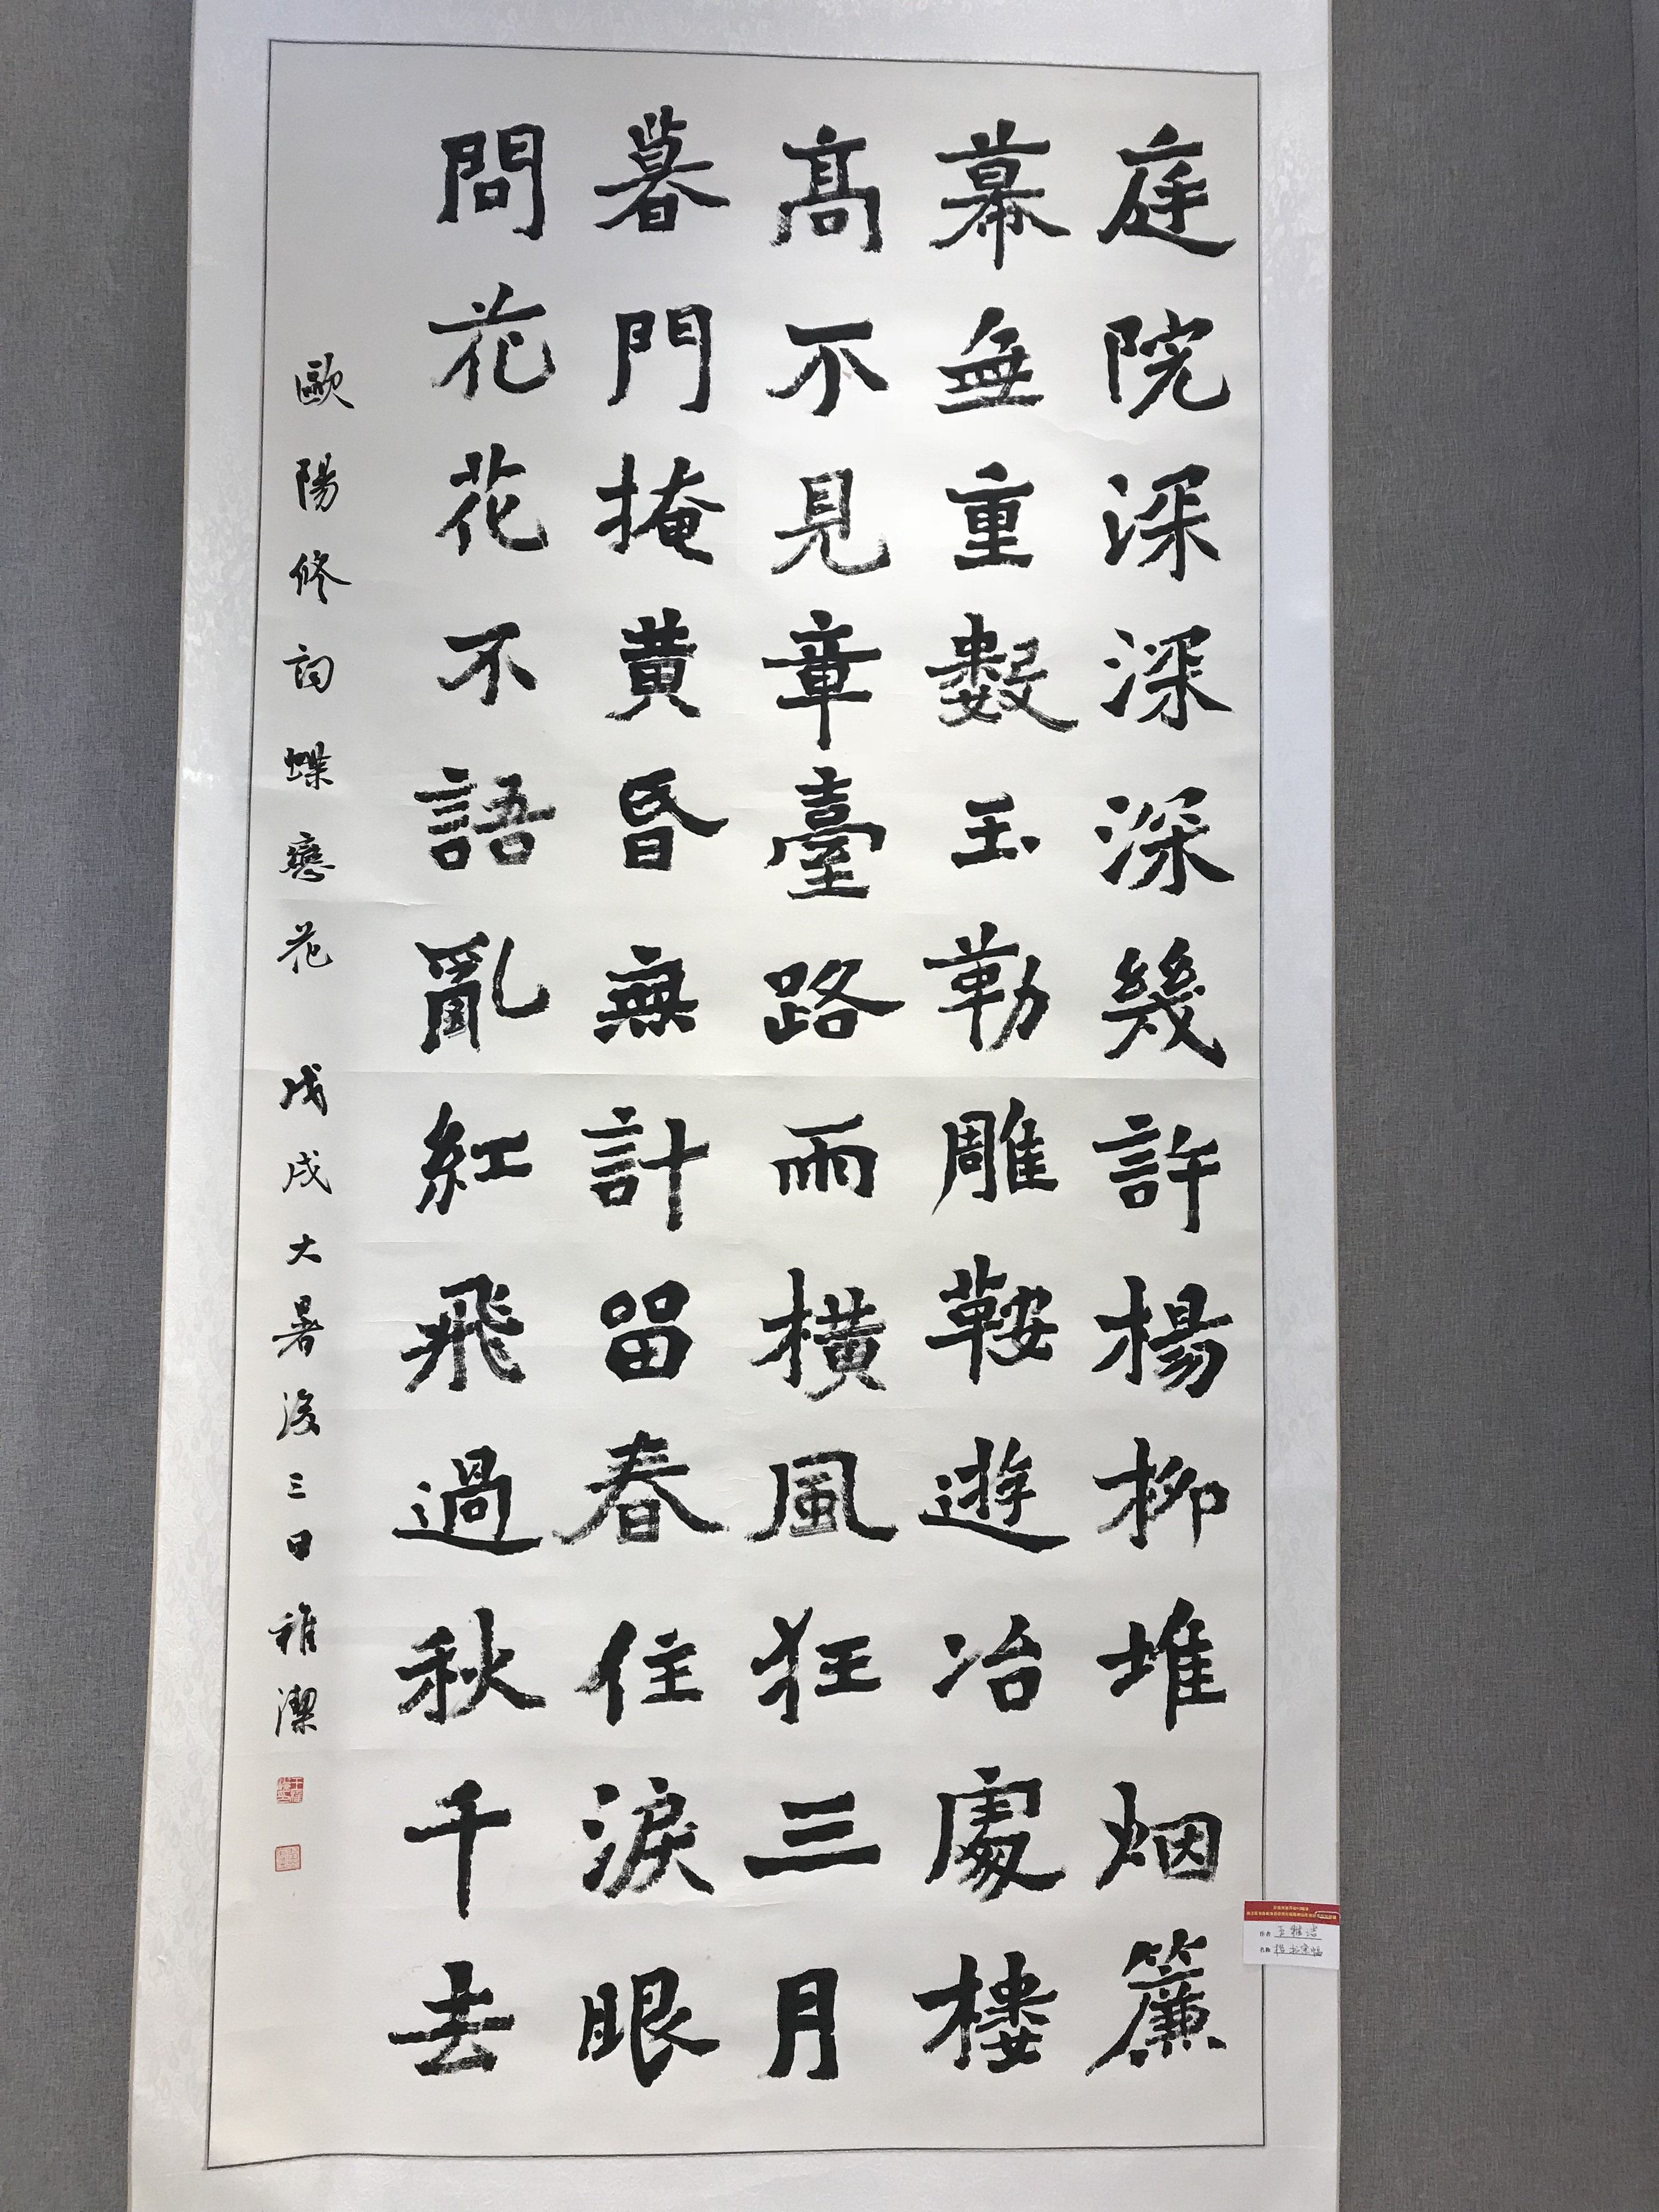 庭院深深深幾許楊柳堆烟簾
幕無重數玉勒雕鞍遊冶處樓
高不見章臺路雨橫風狂三月
暮門掩黃昏無計留春住淚眼
問花花不語亂紅飛過秋千去
歐陽修詞蝶戀花 戊戌大暑後三日 雅潔
作者 王雅洁
名称